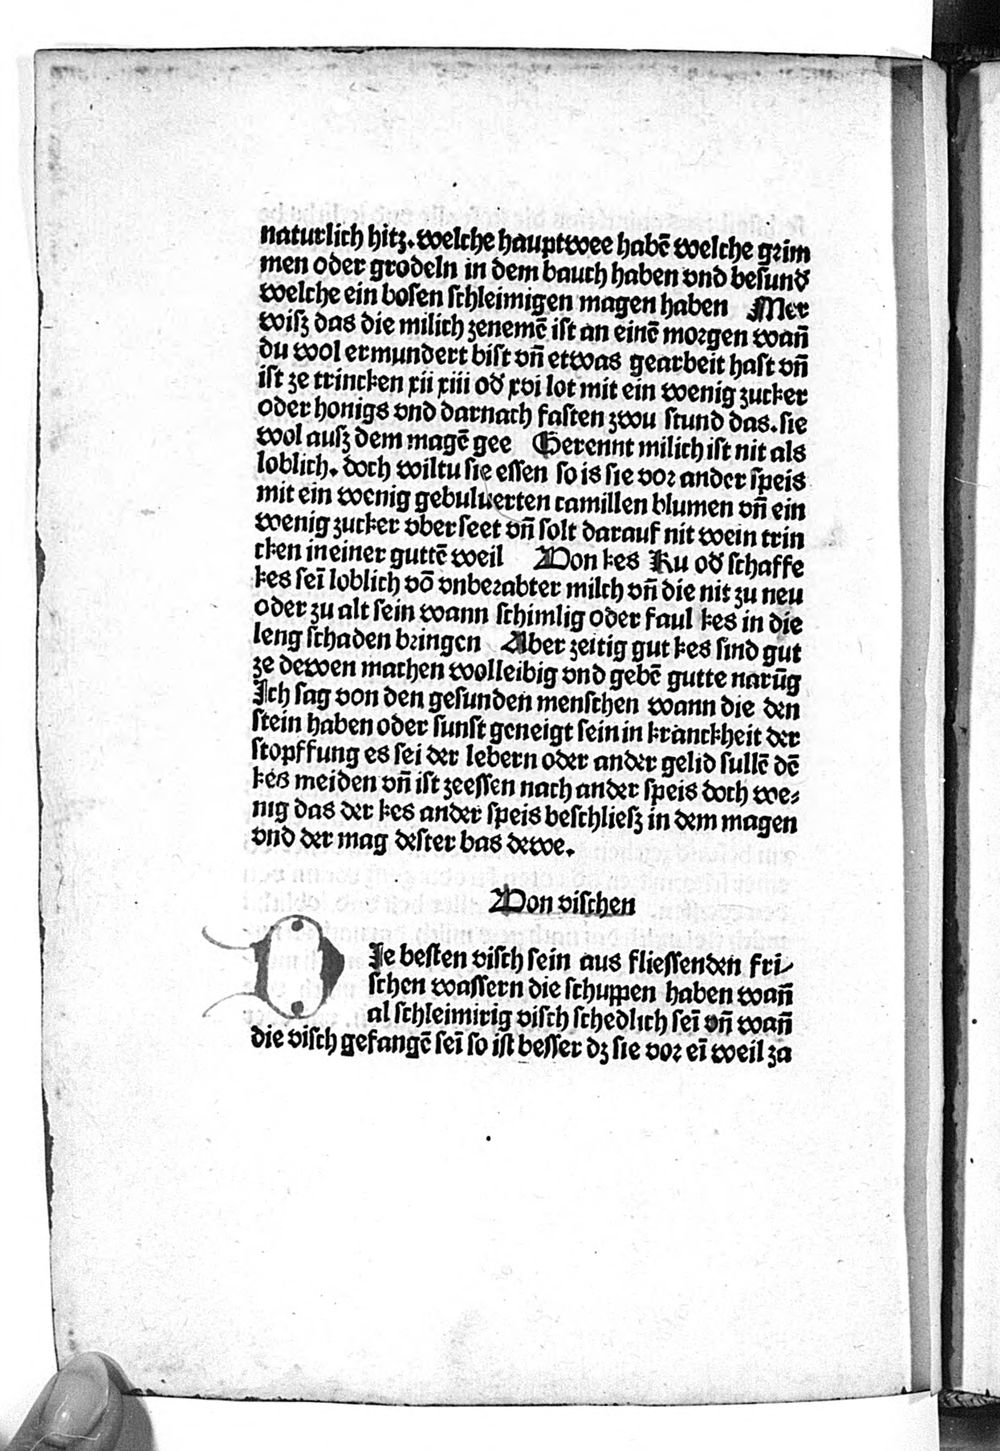 naturlich hitz. welche hauptwee habē welche grim
men oder grodeln in dem bauch haben vnd besund
welche ein bosen schleimigen magen haben Mer
wisz das die milich zenemē ist an einē morgen wañ
du wol ermundert bist vñ etwas gearbeit hast vñ
ist ze trincken xii xiii od xvi lot mit ein wenig zucker
oder honigs vnd darnach fasten zwu stund das. sie
wol ausz dem magē gee Gerennt milich ist nit als
loblich. doch wiltu sie essen so is sie vor ander speis
mit ein wenig gebuluerten camillen blumen vñ ein
wenig zucker vber seet vñ solt darauf nit wein trin
cken in einer guttē weil Von kes Ku od schaffe
kes seī loblich vō vnberabter milch vñ die nit zu neu
oder zu alt sein wann schimlig oder faul kes in die
leng schaden bringen Aber zeitig gut kes sind gut
ze dewen machen wolleibig vnd gebē gutte narūg
Ich sag von den gesunden menschen wann die den
stein haben oder sunst geneigt sein in kranckheit der
stopffung es sei der lebern oder ander gelid sullē dē
kes meiden vñ ist zeessen nach ander speis doch we⸗
nig das der kes ander speis beschliesz in dem magen
vnd der mag dester bas dewe.
Von vischen
DIe besten visch sein aus fliessenden fri⸗
schen wassern die schuppen haben wañ
al schleimirig visch schedlich seī vñ wañ
die visch gefangē seī so ist besser dz sie vor eī weil za